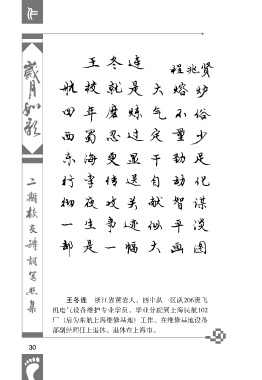 岁月如歌
二期校友诗词写照集
王冬连
程兆贤
航技就是大熔炉
四年磨炼气不俗
西蜀忍过定量少
东海更显干劲足
行李传送自动化
彻夜攻关献智谋
一生事迹似平淡
都是一幅大画图
王冬连 浙江省黄岩人，四中队一区队206班飞
机电气设备维护专业学员，毕业分配到上海民航102
厂（后为东航上海维修基地）工作，在维修基地设备
部副经理任上退休。退休在上海市。
30